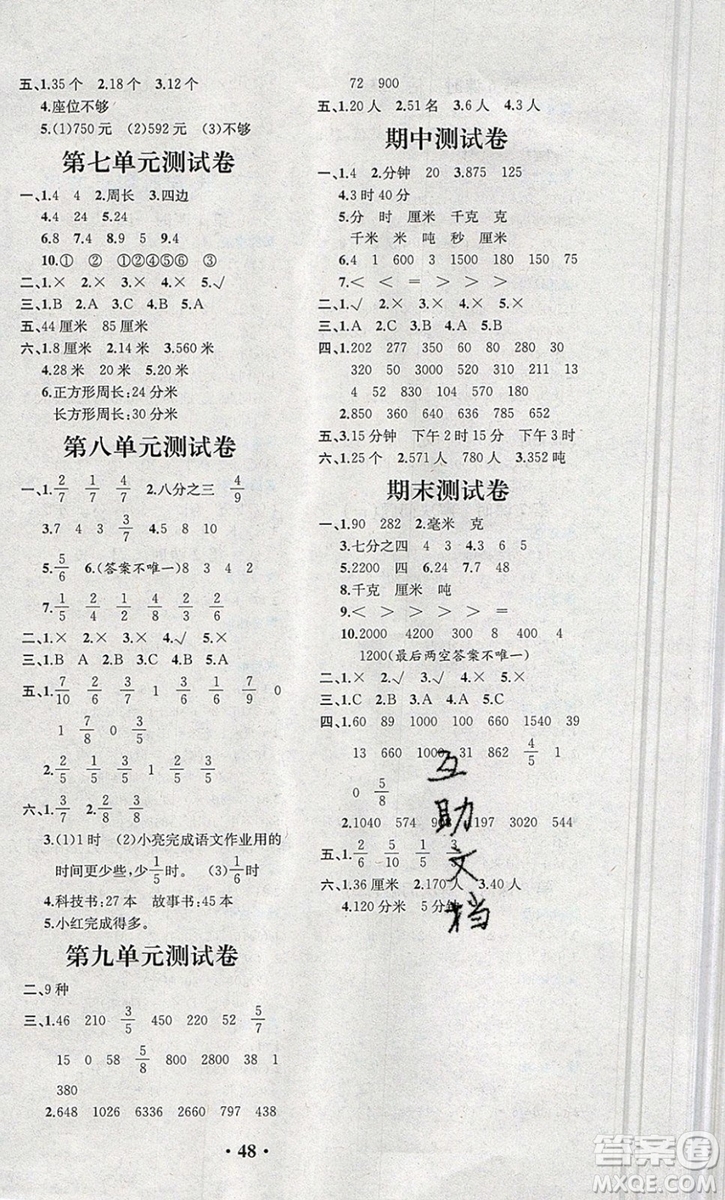 五、1.35个 2.18个 3.12个
4.座位不够
5.(1)750元 (2)592元 (3)不够
第七单元测试卷
一、1.4 4 2.周长 3.四边
4.4 24 5.24
6.8 7.4 8.9 5 9.4
10.① ② ①②④⑤⑥ ③
二、1.× 2.× 3.× 4.× 5.√
三、1.B 2.A 3.B 4.C 5.A
五、44厘米 85厘米
六、1.8厘米 2.14米 3.560米
4.28米 20米 5.20米
6.正方形周长:24分米
长方形周长:30分米
第八单元测试卷
一、1.2/7 1/7 4/7 2.八分之三 4/9
3.7 4 3 3/7 4.5 8 10
5.5/6 6.(答案不唯一)8 3 4 2
7.1/4 2/4 4/8 2/8 1/3
二、1.× 2.× 3.× 4.√ 5.×
三、1.C 2.C 3.B 4.A 5.B
五、1.7/10 2/10 3/6 1/3 1/7 0
1 7/8 0 3/5
2.2/5 1/5 1 3/5 2/5
六、1.3/7 2.3/8
3.(1)1时 (2)小亮完成语文作业用的
时间更少些,少1/5时 (3)1/5时
4.科技书:27本 故事书:45本
5.小红完成得多。
第九单元测试卷
二、9种
三、1.46 210 3/5 450 240 52 5/7
15 0 58 5/8 170 88 240 1
380
2.648 1026 6336 2000 797 438
· 48 ·
72 900
五、1.20人 2.51名 3.6人 4.3人
期中测试卷
一、1.4 2.分钟 20 3.875 125
4.3时40分
5.分 时 厘米 千克 克
千米 米 吨 秒 厘米
6.4 1 6000 5 1500 150 75
7.< < = > > >
二、1.√ 2.× 3.× 4.× 5.×
三、1.A 2.C 3.B 4.A 5.B
四、1.202 277 350 60 80 30
320 50 3000 1000 310
4 52 830 130 8
2.850 642 640 708 652
五、3.15分钟 下午2时15分 下午3时
六、1.25个 2.571人 780人 3.352吨
期末测试卷
一、1.90 282 2.毫米 克
3.七分之四 4 3 4.3 5
5.2200 四 6.24 7.7 48
8.千克 厘米 吨
9.< > > > =
10.2000 4200 300 8 400 4
1200(最后两空答案不唯一)
二、1.× 2.√ 3.× 4.× 5.×
三、1.C 2.A 3.B 4.C 5.B
四、1.60 89 1000 600 1540 39
13 660 1000 31 862 4/5 1
0 5/8
2.1040 574 9 8 4197 3020 544
五、1.2/6 5/10 2/5 3/8
六、1.36厘米 2.170人 3.40人
4.120分米 5分钟
互助文档
答案圈
MXQE.COM